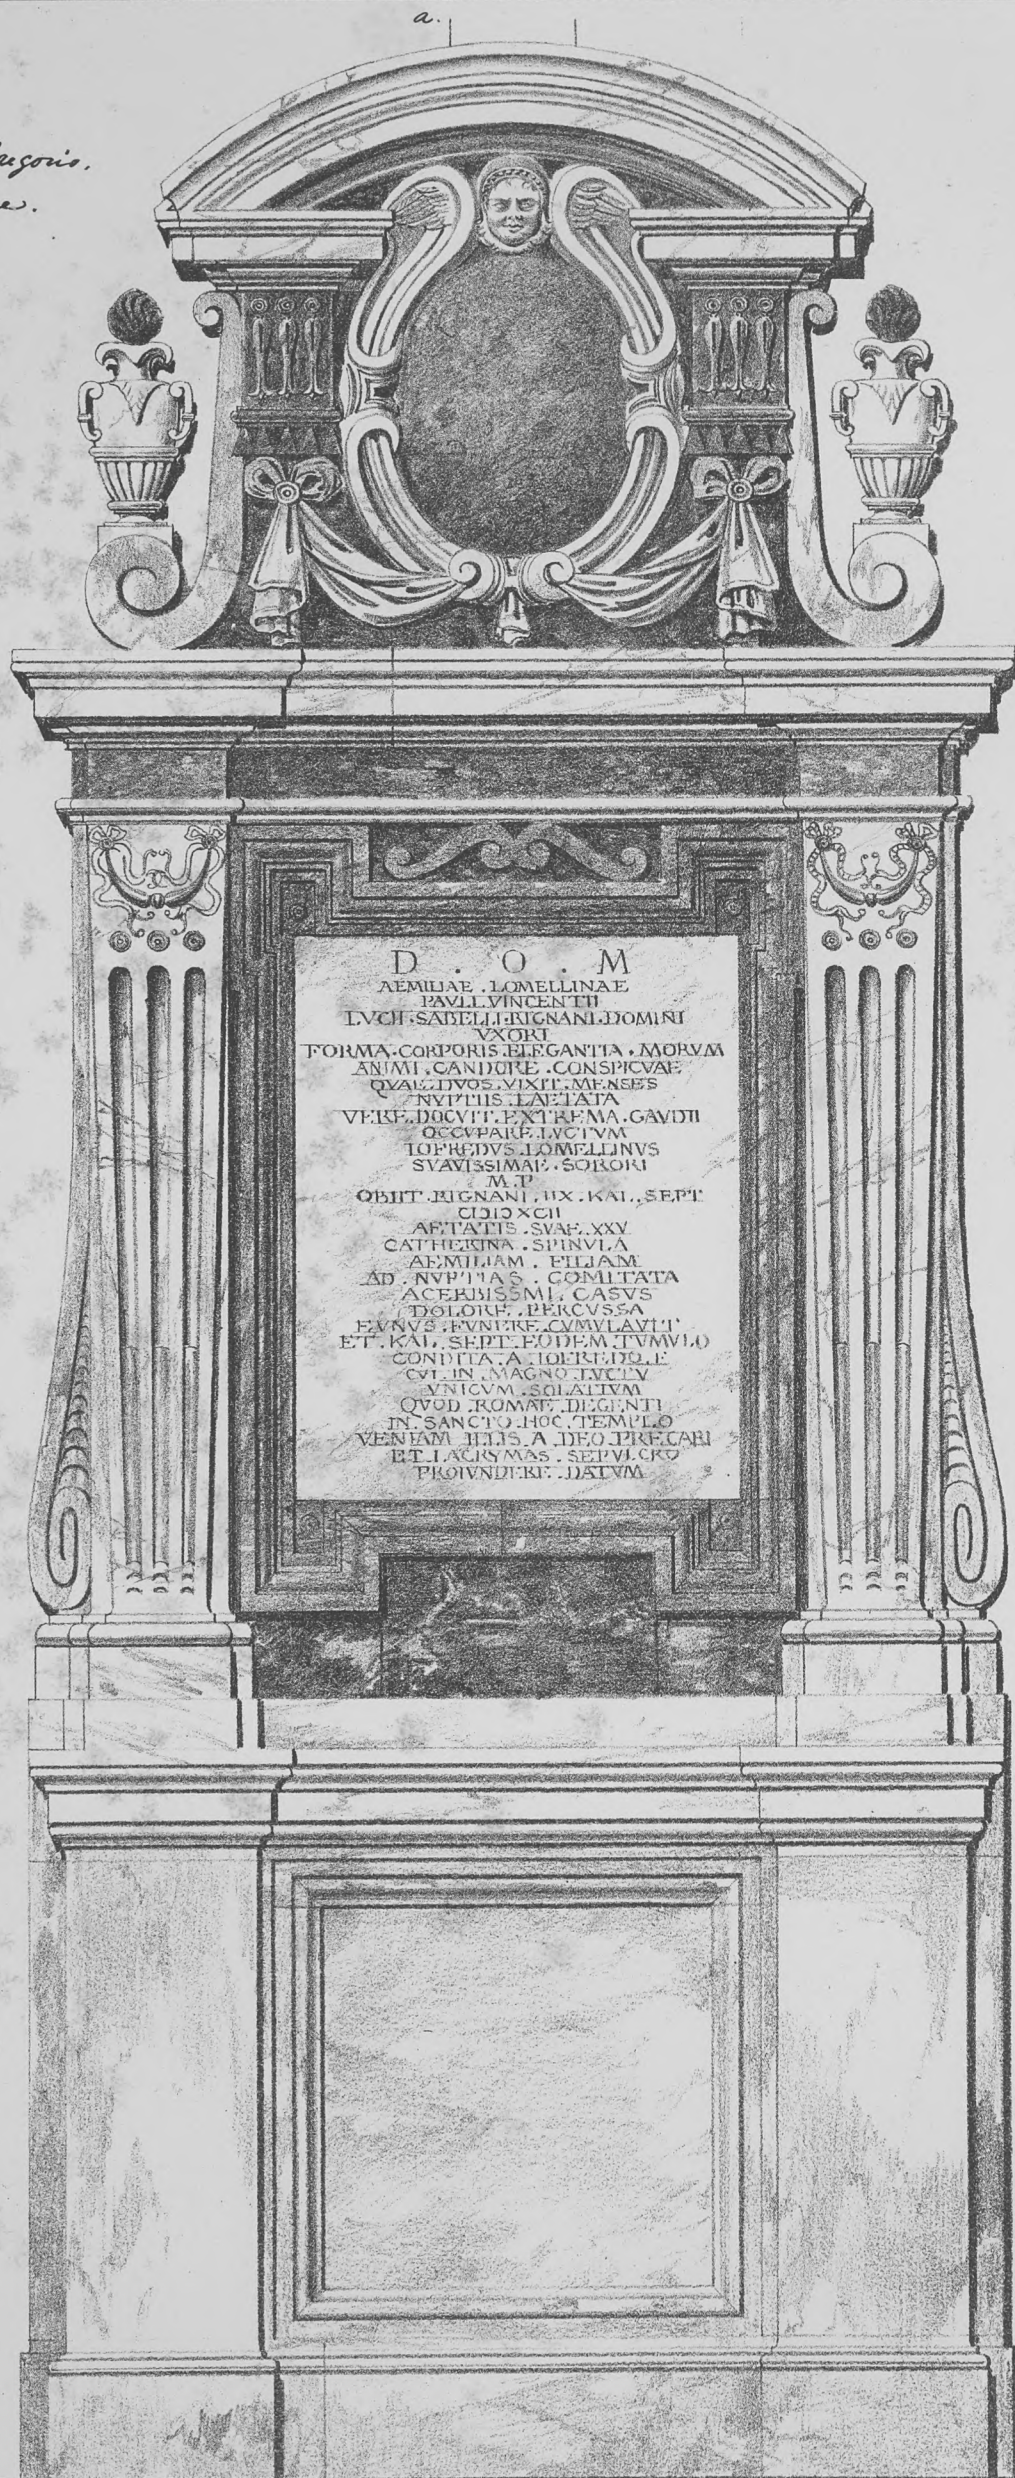 a.
regorio.
e.
D . O . M
AEMILIAE . LOMELLINAE
PAVLI . VINCENTII
LVCII . SABELLI . RIGNANI . DOMINI
VXORI
FORMA . CORPORIS . ELEGANTIA . MORVM
ANIMI . CANDORE . CONSPICVAE
QVAE . DVOS . VIXIT . MENSES
NVPTIIS . LAETATA
VERE . DOCVIT . EXTREMA . GAVDII
OCCVPARE . LVCTVM
IOFREDVS . LOMELLINVS
SVAVISSIMAE . SORORI
M . P
OBIIT . RIGNANI . IIX . KAL . SEPT
CIƆIƆXCII
AETATIS . SVAE . XXV
CATHERINA . SPINVLA
AEMILIAM . FILIAM
AD . NVPTIAS . COMITATA
ACERBISSMI . CASVS
DOLORE . PERCVSSA
FVNVS . FVNERE . CVMVLAVIT
ET . KAL . SEPT . EODEM . TVMVLO
CONDITA . A . IOFREDO . F
CVI . IN . MAGNO . LVCTV
VNICVM . SOLATIVM
QVOD . ROMAE . DEGENTI
IN . SANCTO . HOC . TEMPLO
VENIAM . ILLIS . A . DEO . PRECARI
ET . LACRYMAS . SEPVLCRO
PROFVNDERE . DATVM